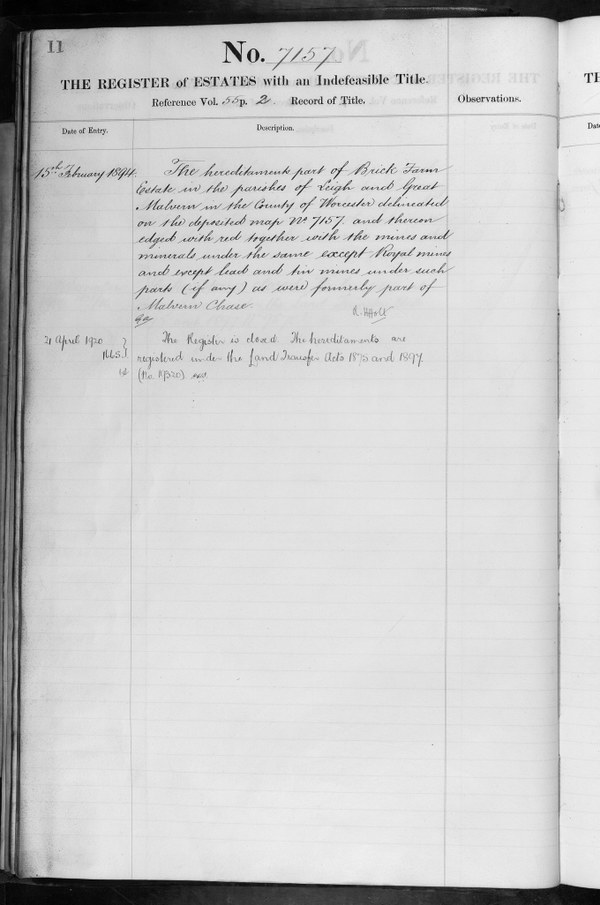 11
No. 7157
THE REGISTER of ESTATES with an Indefeasible Title.
Reference Vol. 55 p. 2. Record of Title.
Observations.
Date of Entry.
Description.
15th February 1894.
The hereditaments part of Brick Farm
Estate in the parishes of Leigh and Great
Malvern in the County of Worcester delineated
on the deposited map No 7157. and thereon
edged with red together with the mines and
minerals under the same except Royal mines
and except lead and tin mines under such
parts (if any) as were formerly part of
Malvern Chase.
21 April 1920
The Register is closed. The hereditaments are
registered under the Land Transfer Acts 1875 and 1897.